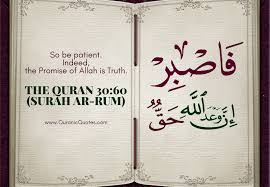 So be patient.
Indeed,
the Promise of Allah is Truth.
THE QURAN 30:60
(SURAH AR-RUM)
www.QuranicQuotes.com
فَاصْبِرْ
إِنَّ وَعْدَ اللَّهِ حَقٌّ